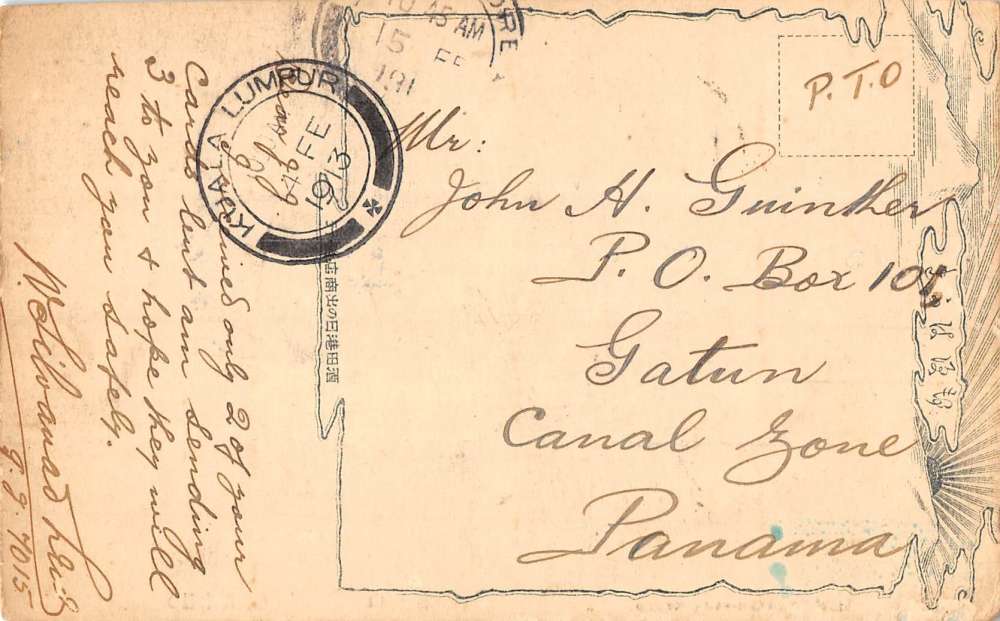 10 45 AM
15 FE
191
ORE
KUALA LUMPUR
FE
1913
P.T.O
Mr:
John H. Guinther
P. O. Box 107
Gatun
Canal Zone
Panama
only 2 of your
Cards lent am sending
3 to you & hope they will
reach you safely.
g.g. 7015
酒田港日の出商店
はがき